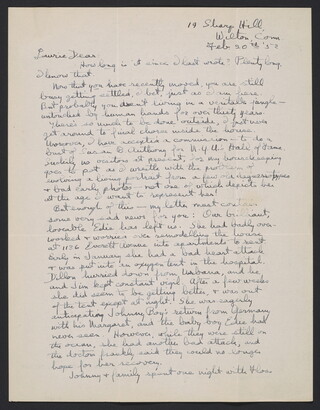 19 Sharp Hill
Wilton, Conn
Feb 20th '52
Laurie Dear,
How long is it since I last wrote? Plenty long,
I know that.
Now that you have recently moved, you are still
busy getting settled, I bet, just as I am here.
But probably you aren't living in a veritable jungle —
untouched by human hands for over thirty years
There's so much to be done outside, I just never
get around to final chores inside the house.
Moreover, I have accepted a commission — to do a
bust of Susan B Anthony for N.Y.U's Hall of Fame.
Luckily no visitors at present, for my housekeeping
goes to pot as I wrestle with the problem of
evolving a living portrait from a few
& bad early photos — not one of which depicts her
at the age I want to represent her!
But enough of this — my letter must contain
some very sad news for you: Our brilliant,
lovable Edie has left us. She had badly over-
worked & worried on remodelling the house
at 1126 Everett into apartments to rent
Early in January she had a bad heart attack
& was put into an oxygen tent in the hospital.
hurried down from Urbana, and he
and Jim kept constant vigil. After a few weeks
she did seem to be getting better, & was out
of the tent except at night. She was eagerly
anticipating Johnny Boy's return from Germany
with his Margaret, and the baby boy Edie had
never seen. However, while they were still on
the ocean, she had another bad attack, and
the doctor frankly said they could no longer
hope for her recovery.
Johnny & family spent one night with